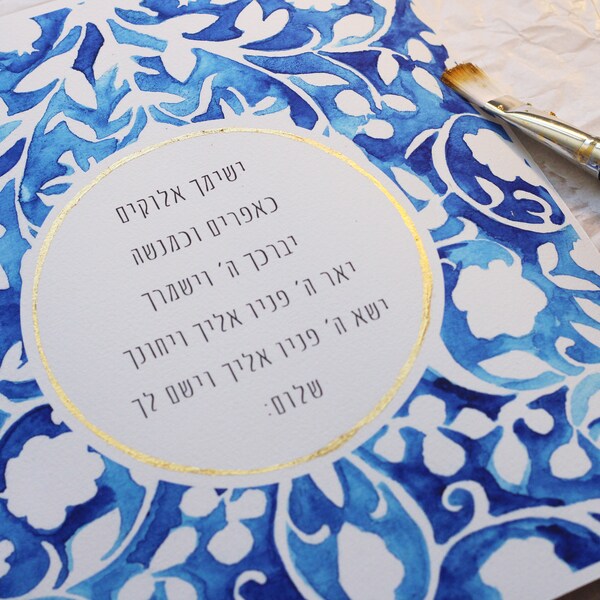 ישימך אלוקים
כאפרים וכמנשה
יברכך ה' וישמרך
יאר ה' פניו אליך ויחונך
ישא ה' פניו אליך וישם לך
שלום: